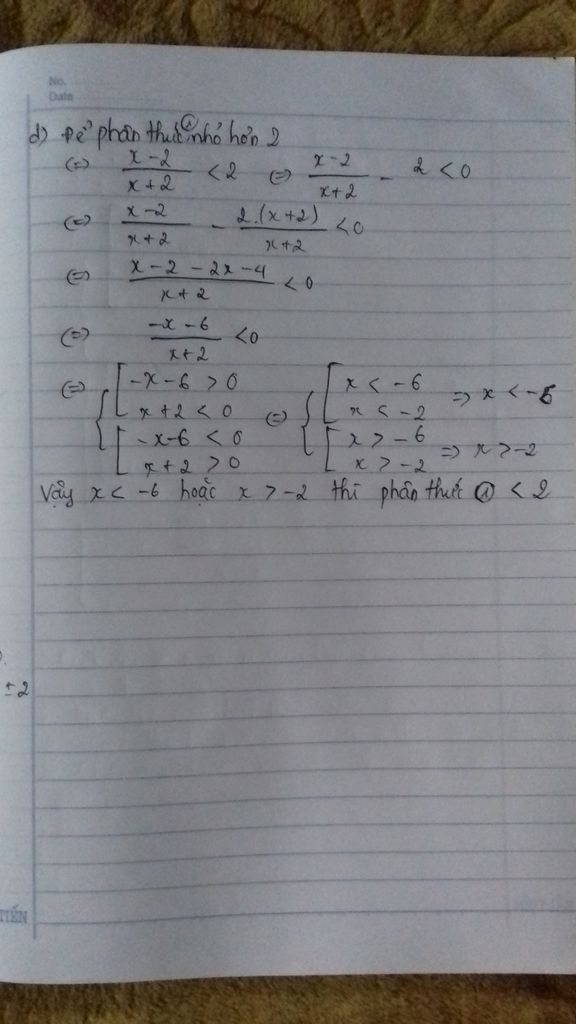 No.
Date
d) Để phân thức ① nhỏ hơn 2
(=) x-2/x+2 < 2 (=) x-2/x+2 - 2 < 0
(=) x-2/x+2 - 2.(x+2)/x+2 < 0
(=) x-2-2x-4/x+2 < 0
(=) -x-6/x+2 < 0
(=) { [ -x-6 > 0 (=) { [ x < -6 => x < -6
x+2 < 0 x < -2
[ -x-6 < 0 [ x > -6 => x > -2
x+2 > 0 x > -2
Vậy x < -6 hoặc x > -2 thì phân thức ① < 2
± 2
TIẾN